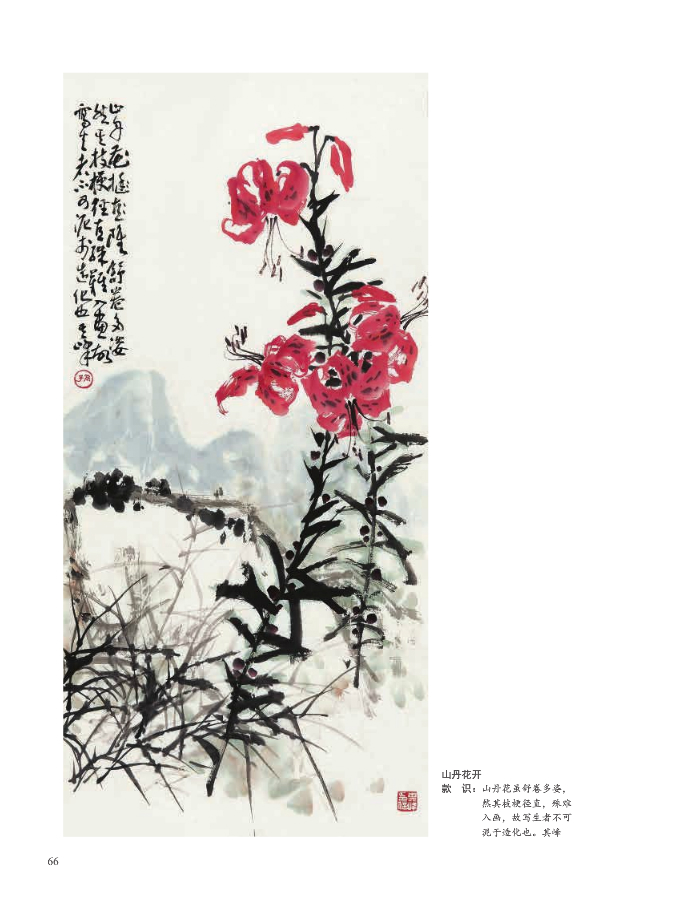 山丹花雖舒卷多姿
然其枝梗徑直殊難入畫故
寫生者不可泥於造化也其峰
山丹花开
款 识：山丹花虽舒卷多姿，
然其枝梗径直，殊难
入画，故写生者不可
泥于造化也。其峰
66